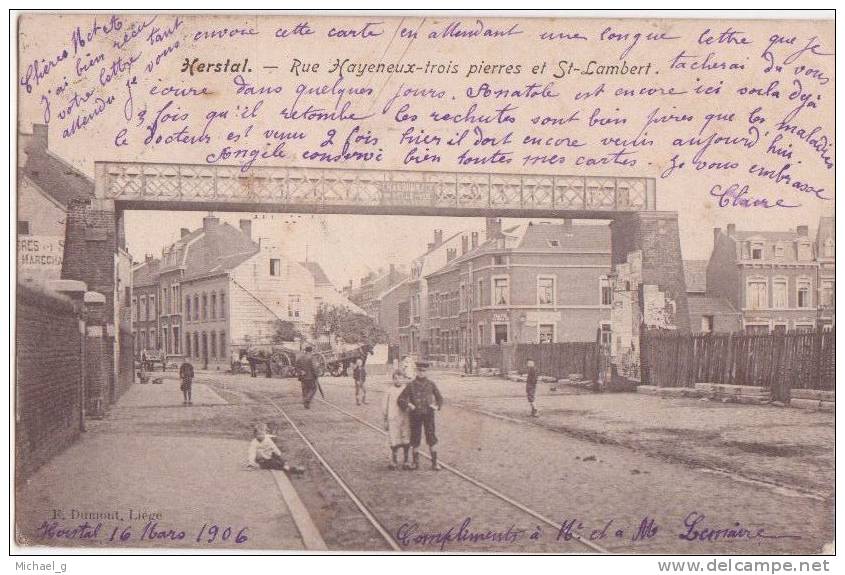 Chères N et A
J'ai bien reçu
votre lettre tant
attendu je vous
envoie cette carte en attendant une longue lettre que je
tacherai de vous
Herstal. — Rue Hayeneux-trois pierres et St-Lambert.
écrire dans quelques jours. Anatole est encore ici voila déjà
3 fois qu'il retombe les rechutes sont bien pires que les maladies
le docteur est venu 2 fois hier il doit encore venir aujourd'hui.
Angèle conserve bien toutes mes cartes. Je vous embrasse
Claire
MARECHA
F. Dumont, Liége
Herstal 16 Mars 1906
Compliments à Mr et a Me Lemaire
Michael_g
www.delcampe.net